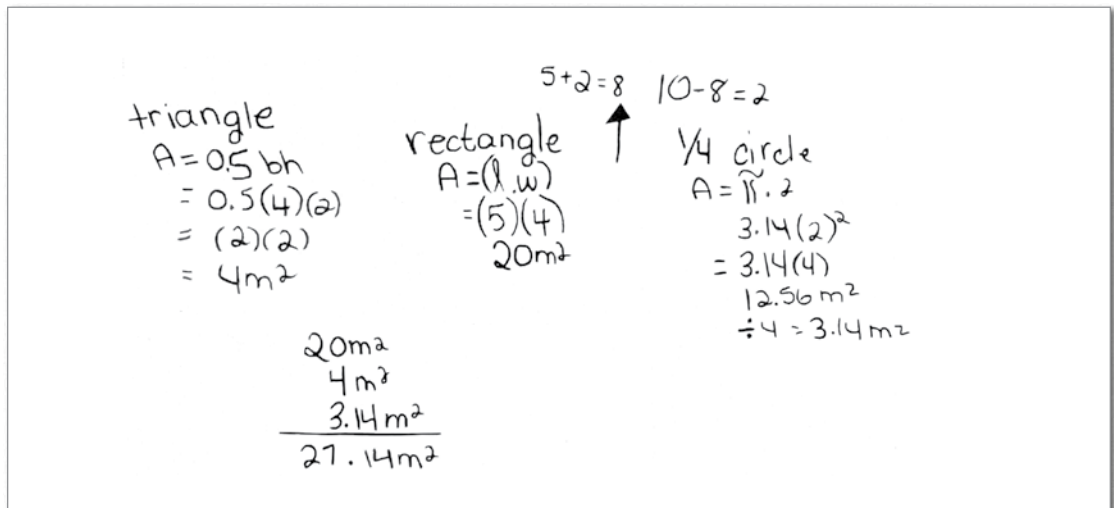 5+2=8 10-8=2
triangle
A=0.5 bh
= 0.5(4)(2)
= (2)(2)
= 4m²
rectangle
A=(l.w)
=(5)(4)
20m²
1/4 circle
A= π.2
3.14(2)²
= 3.14(4)
12.56 m²
÷4 = 3.14 m²
20m²
4m²
3.14m²
27.14m²